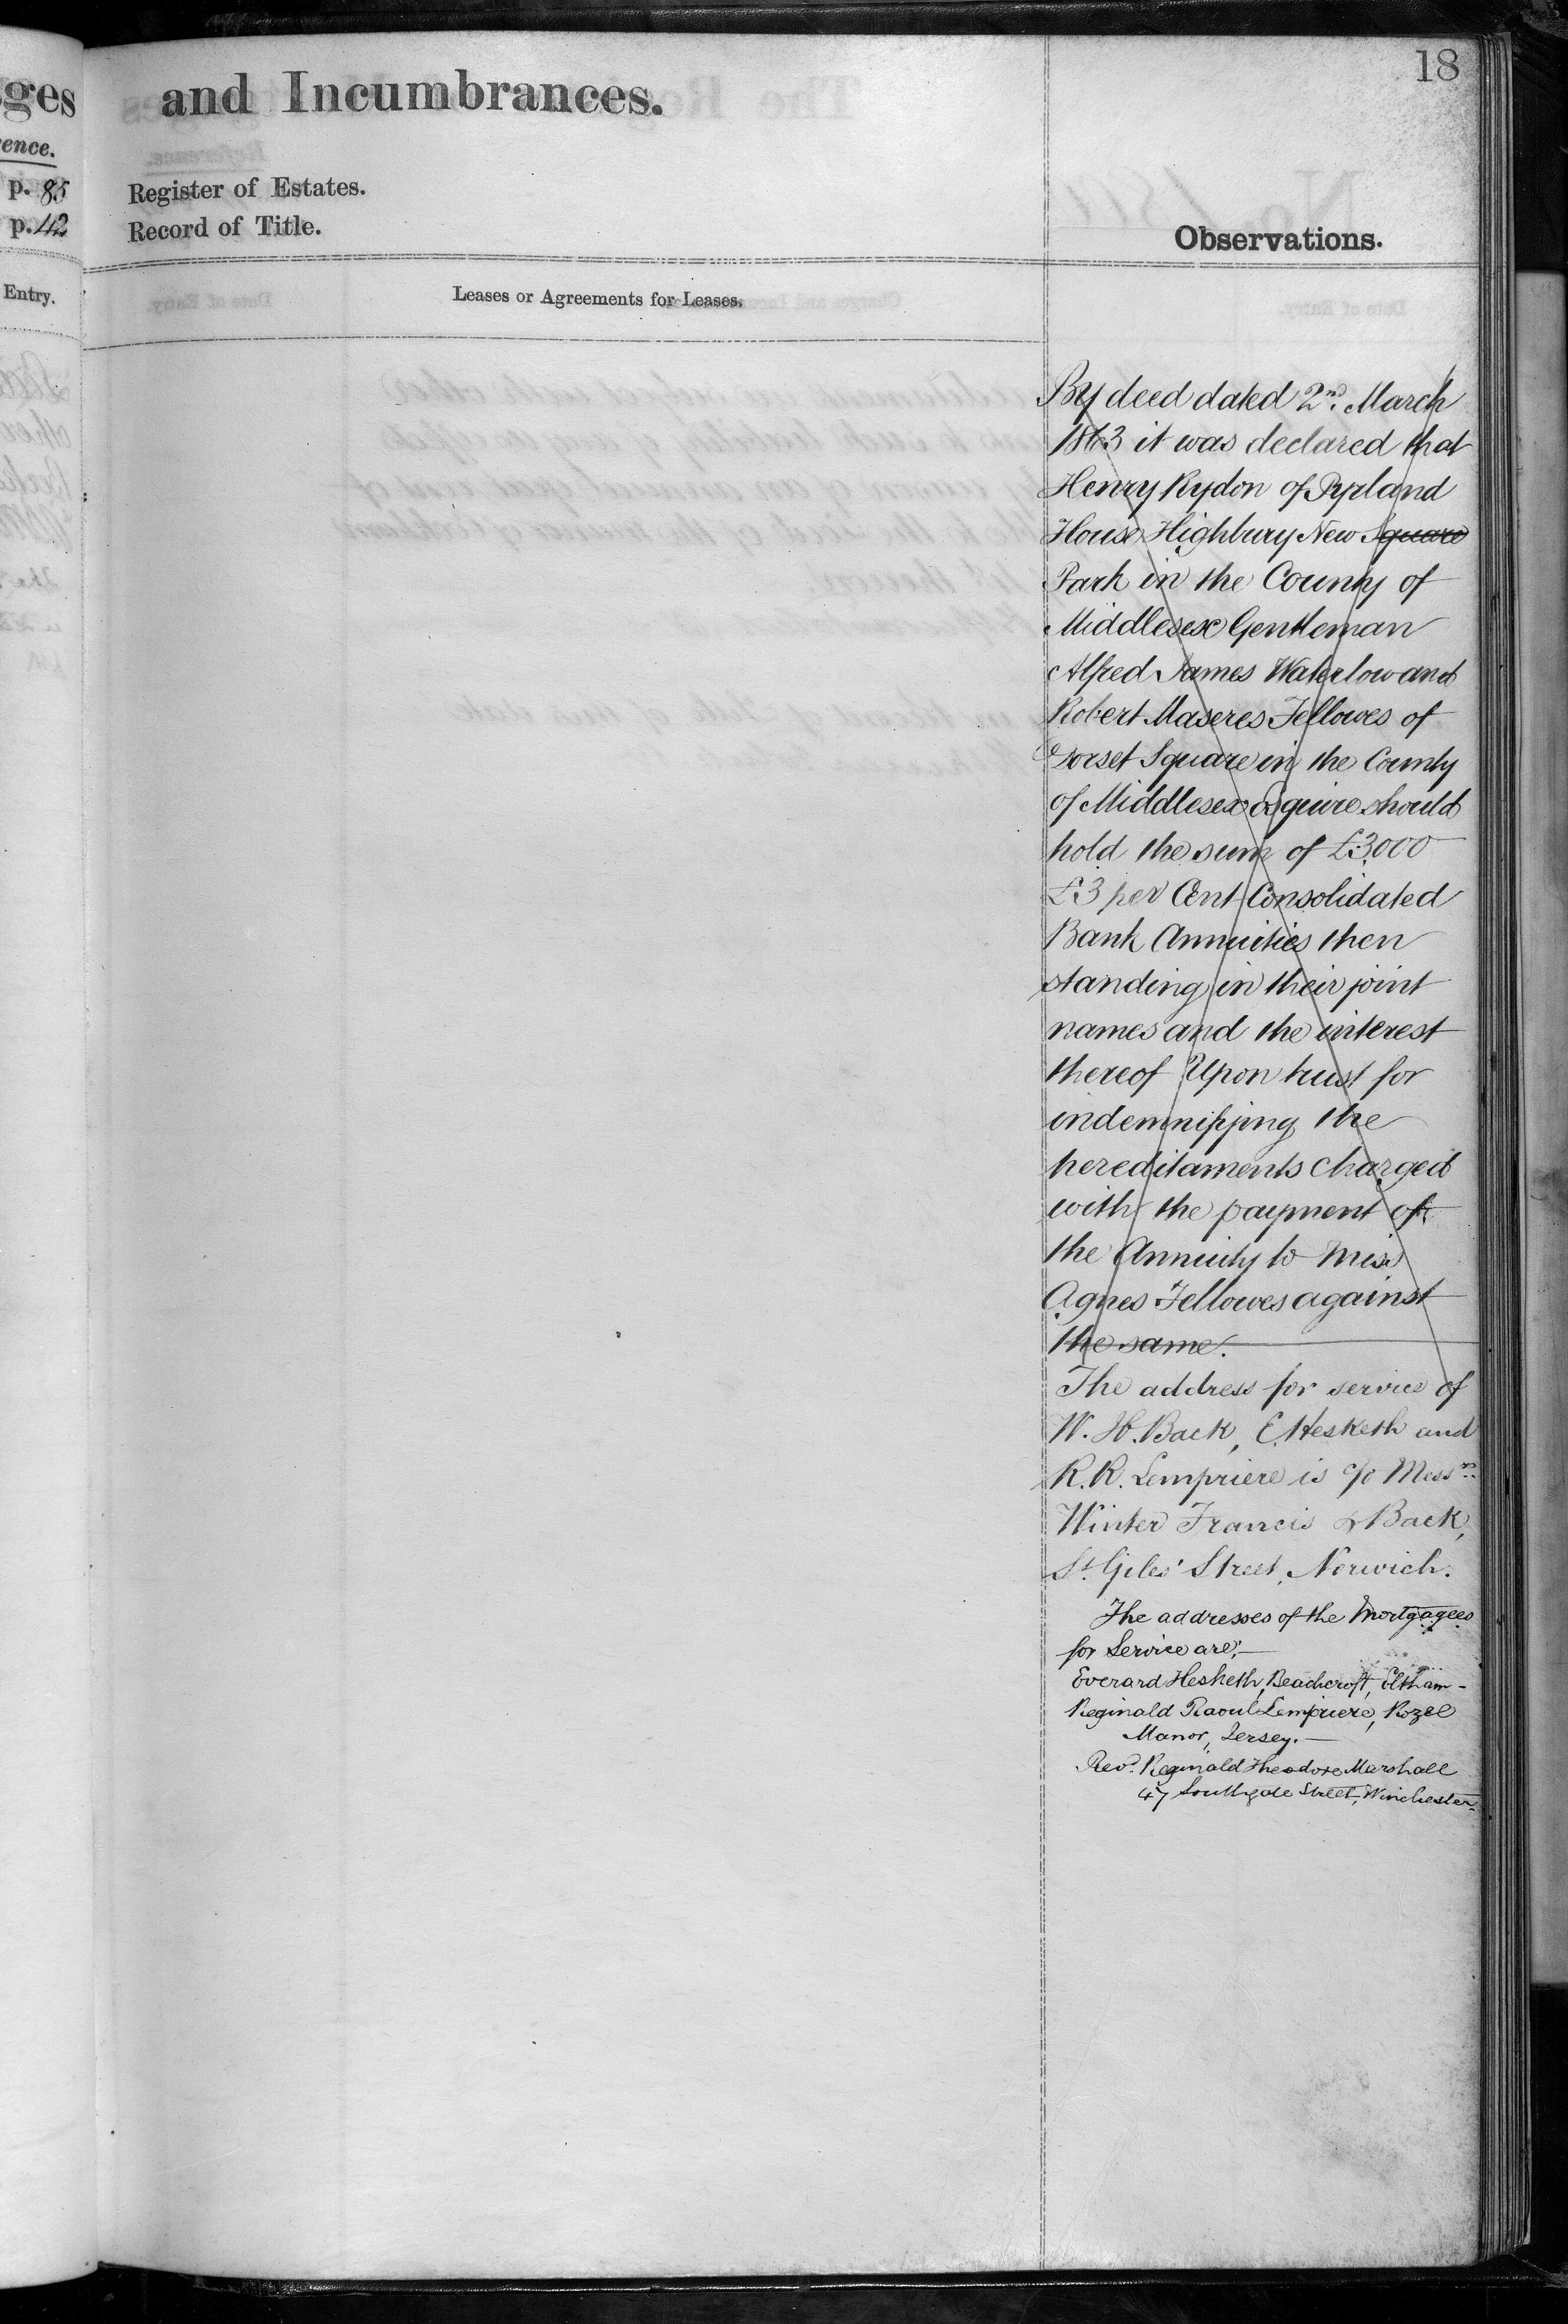 18
and Incumbrances.
Register of Estates.
Record of Title.
Observations.
Leases or Agreements for Leases.
ges
ence.
p. 85
p. 42
Entry.
By deed dated 2nd. March
1863 it was declared that
Henry Rydon of Pyrland
House Highbury New Square
Park in the County of
Middlesex Gentleman
Alfred James Waterlow and
Robert Maseres Fellowes of
Dorset Square in the County
of Middlesex Esquire should
hold the sum of £3,000
£3 per Cent Consolidated
Bank Annuities then
standing in their joint
names and the interest
thereof Upon trust for
indemnifying the
hereditaments charged
with the payment of
the Annuity to Miss
Agnes Fellowes against
the same.
The address for service of
W. H. Back, E. Hesketh and
R. R. Lempriere is c/o Messrs.
Winter Francis & Back,
St. Giles' Street, Norwich.
The addresses of the Mortgagees
for Service are:—
Everard Hesketh, Beachcroft, Eltham—
Reginald Raoul Lempriere, Rozel
Manor, Jersey.—
Revd. Reginald Theodore Marshall
47 Southgate Street, Winchester.